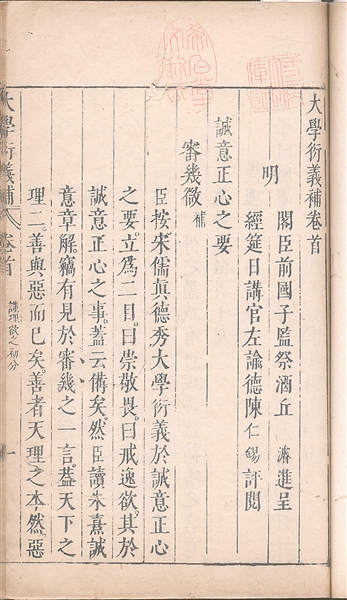 大學衍義補卷首
明
閣臣前國子監祭酒丘 濬進呈
經筵日講官左諭德陳仁錫評閱
誠意正心之要
審幾微補
臣按宋儒眞德秀大學衍義於誠意正心
之要立爲二目曰崇敬畏曰戒逸欲其於
誠意正心之事蓋云備矣然臣讀朱熹誠
意章解竊有見於審幾之一言蓋天下之
理二善與惡而已矣善者天理之本然惡
謹理欲之初分
大學衍義補 卷首 一